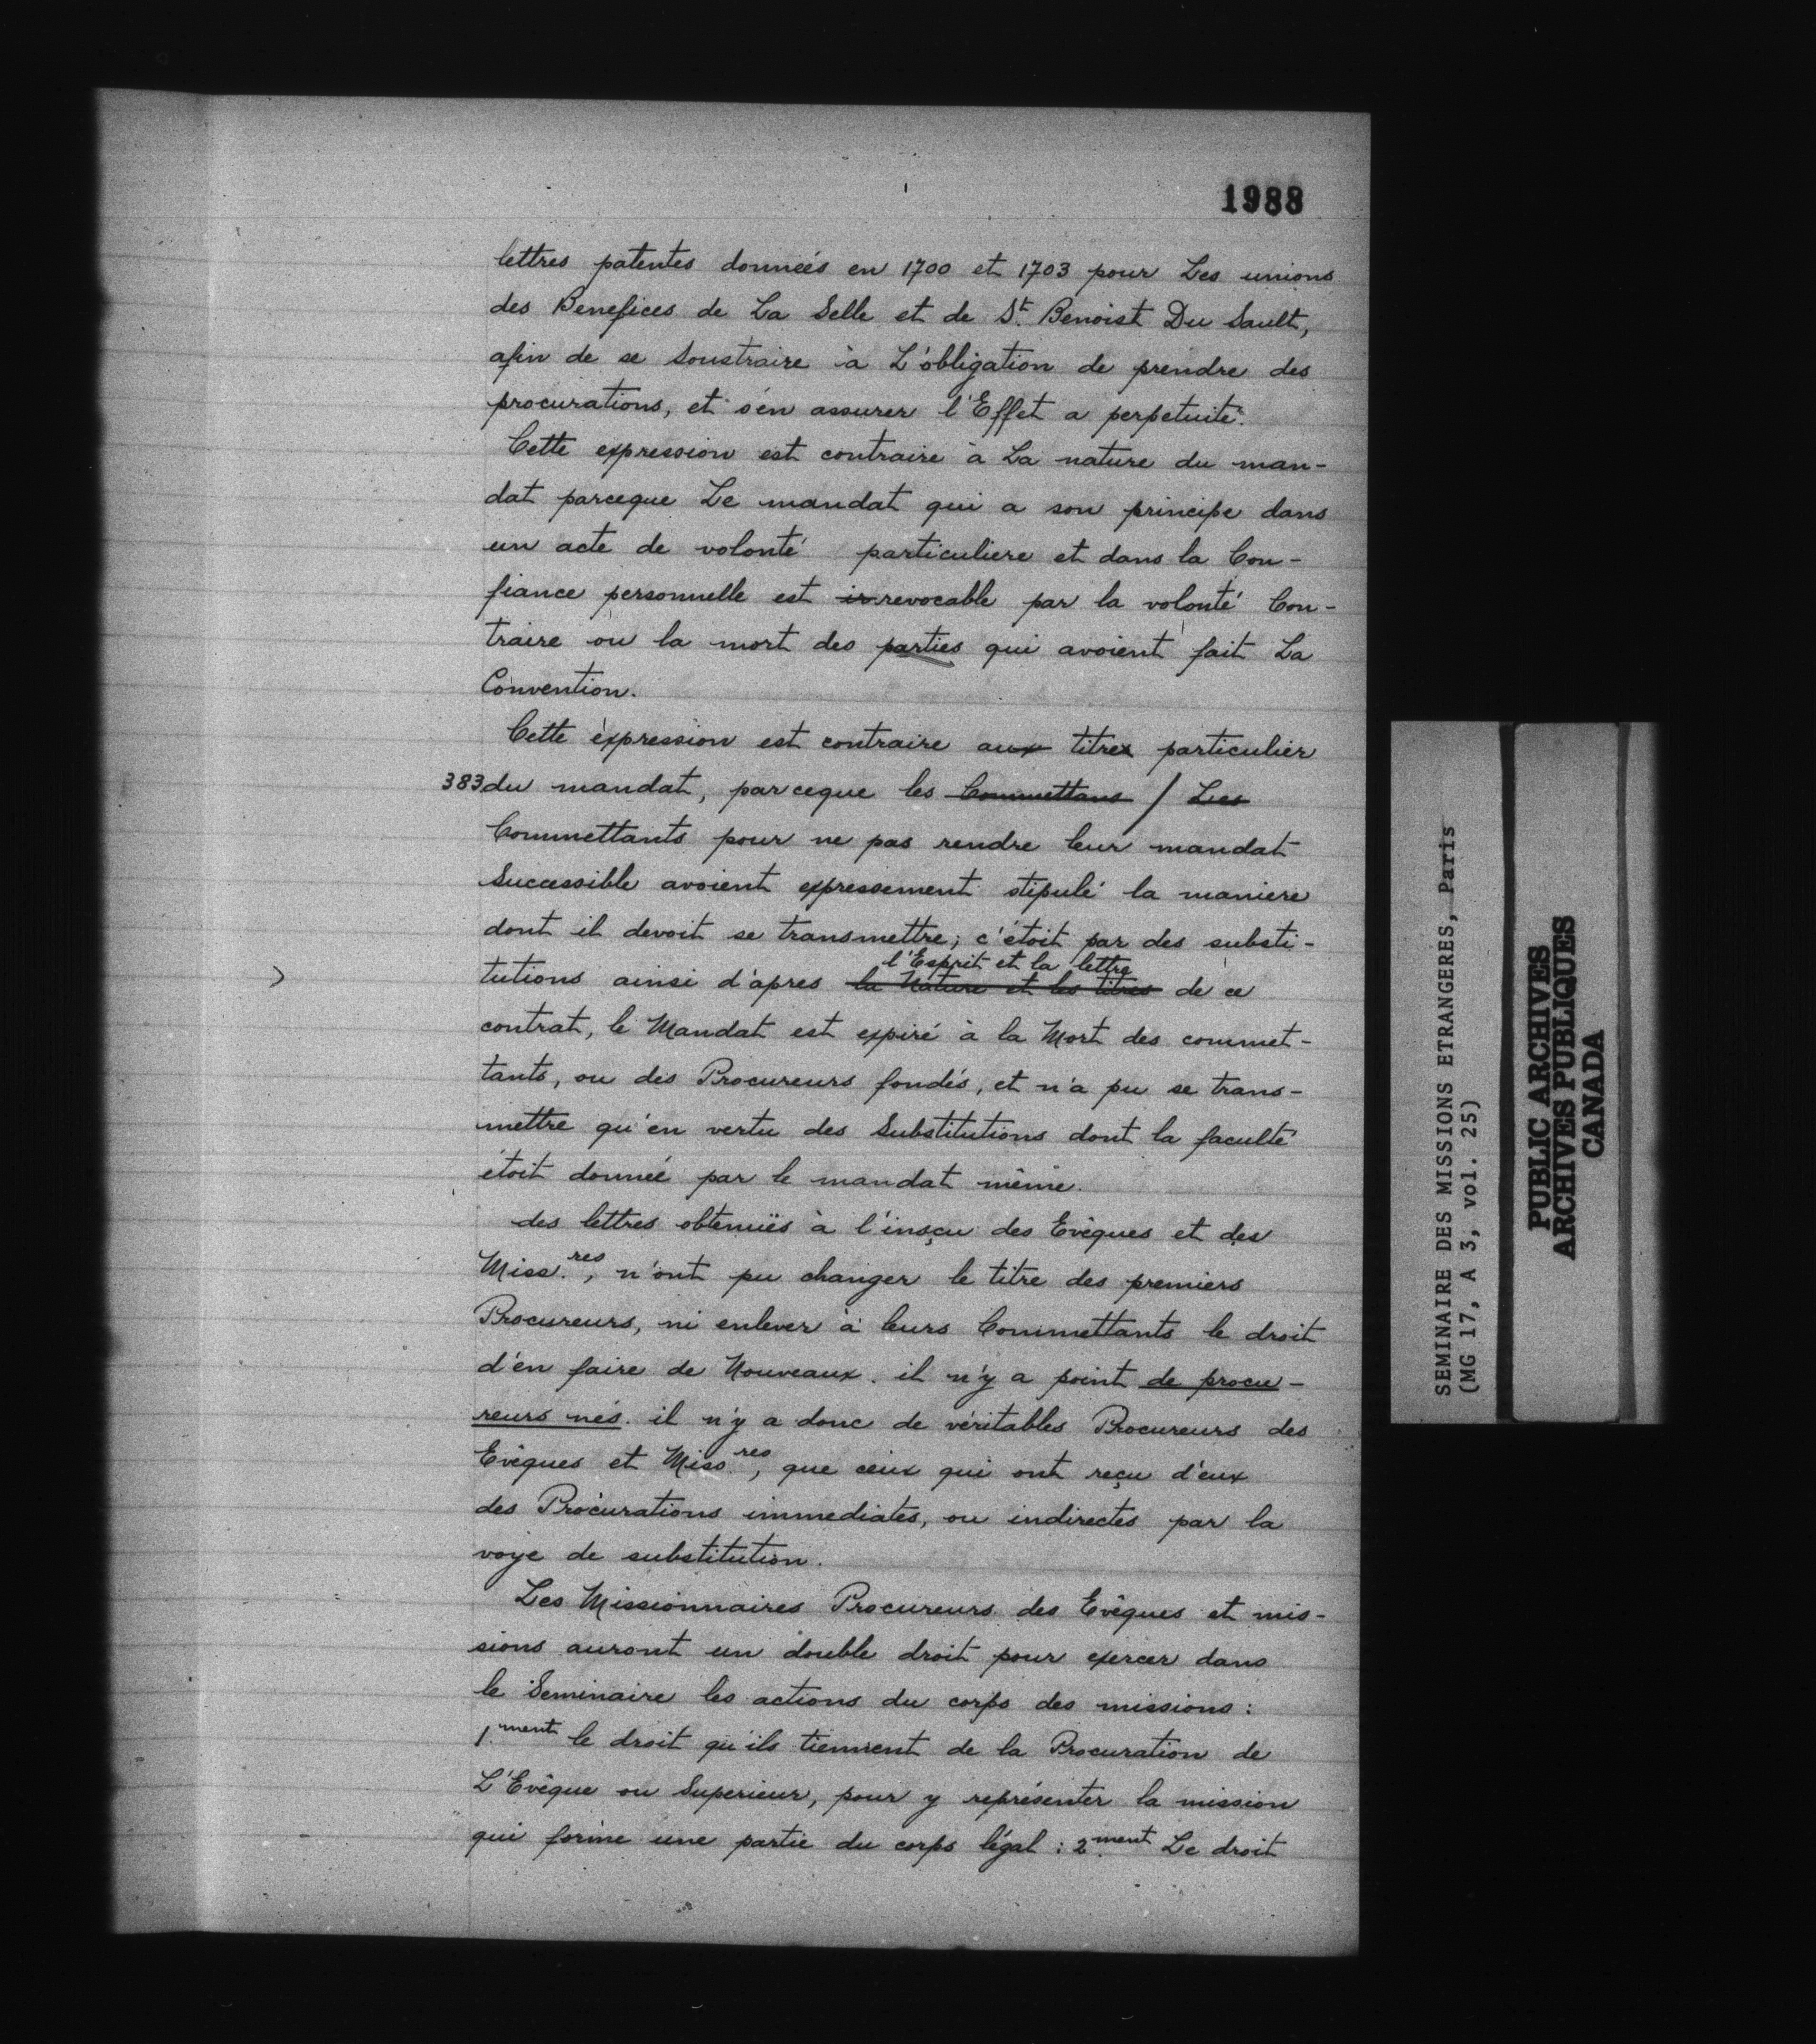 1988
lettres patentes donneés en 1700 et 1703 pour Les unions
des Benefices de La Selle et de St. Benoist Du Sault,
afin de se Soustraire à L'obligation de prendre des
procurations, et s'en assurer l'Effet a perpetuité.
Cette expression est contraire à La nature du man-
dat parceque Le mandat qui a son principe dans
un acte de volonté particuliere et dans la Con-
fiance personnelle est irrevocable par la volonté Con-
traire ou la mort des parties qui avoient fait La
Convention.
Cette éxpression est contraire aux titres particulier
383 du mandat, parceque les Commettans / Les
Commettants pour ne pas rendre leur mandat
Successible avoient expressement stipulé la maniere
dont il devoit se transmettre; c'étoit par des substi-
l'Esprit et la lettre
tutions ainsi d'apres la Nature et les titres de ce
contrat, le Mandat est expiré à la Mort des commet-
tants, ou des Procureurs fondés, et n'a pu se trans-
mettre qu'en vertu des Substitutions dont la faculté
étoit donneé par le mandat même.
des lettres obtenuës à l'insçu des Evêques et des
Miss.res, n'ont pu changer le titre des premiers
Procureurs, ni enlever à leurs Commettants le droit
d'en faire de Nouveaux. il n'y a point de procu-
reurs nés. il n'y a donc de véritables Procureurs des
Evêques et Miss.res, que ceux qui ont reçu d'eux
des Procurations immediates, ou indirectes par la
voye de substitution.
Les Missionnaires Procureurs des Evêques et mis-
sions auront un double droit pour exercer dans
le Seminaire les actions du corps des missions :
1.ment le droit qu'ils tiennent de la Procuration de
L'Evêque ou Superieur, pour y représenter la mission
qui forme une partie du corps légal : 2.ment Le droit
SEMINAIRE DES MISSIONS ETRANGERES, Paris
(MG 17, A 3, vol. 25)
PUBLIC ARCHIVES
ARCHIVES PUBLIQUES
CANADA